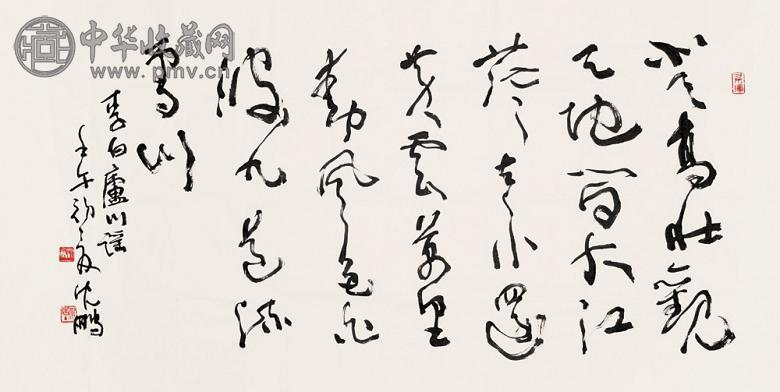 中华收藏网
www.pmv.cn
登高壮觀
天地间大江
茫〻去不還
黄雲萬里
動風色白
波九道流
雪山
李白廬山谣
壬午初夏沈鹏